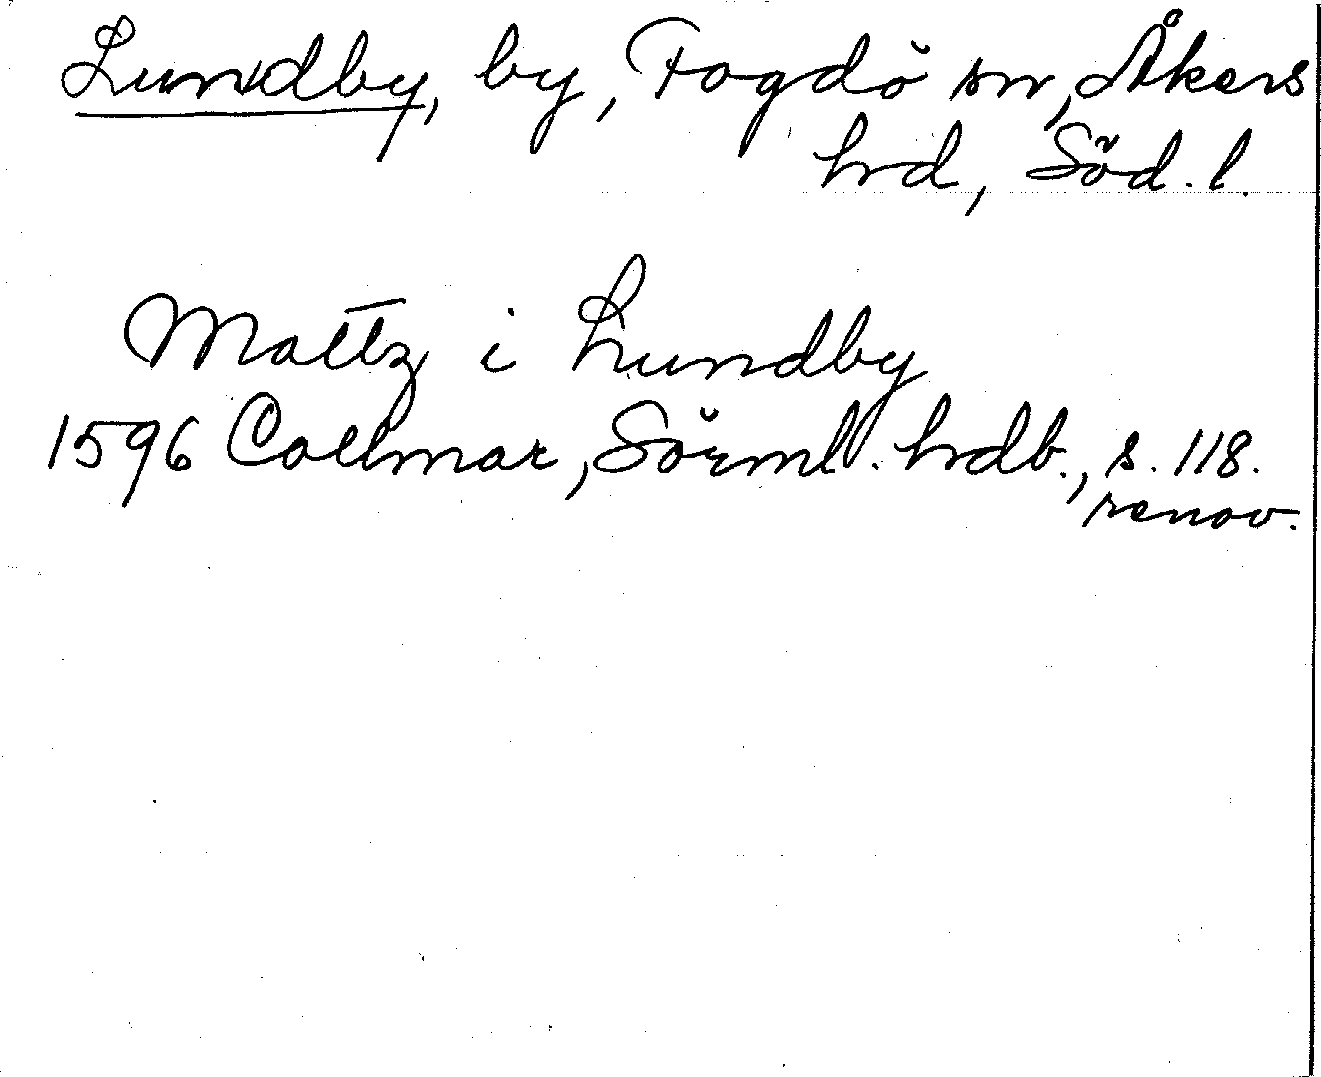 Lundby, by, Fogdö sn, Åkers
hd, Söd. l.
Mattz i Lundby
1596 Collmar, Sörml. hdb., s. 118.
renov.